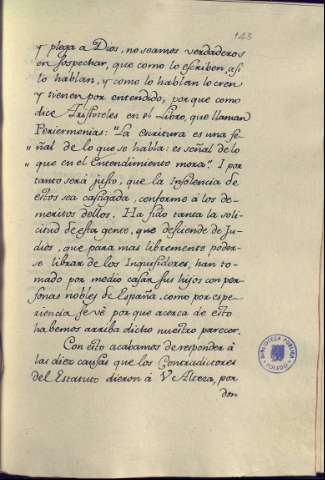 143
y plega a Dios, no seamos verdaderos
en sospechar, que como lo escriben, asi
lo hablan, y como lo hablan lo cren
y tienen por entendido, porque como
dice Aristoteles en el Libro, que llaman
Periermenias: "La escritura es una se-
" ñal de lo que se habla: es señal de lo
" que en el Entendimiento mora". I por
tanto será justo, que la Insolencia de
estos sea castigada, conforme à los de-
meritos dellos. Ha sido tanta la soli-
citud de esta gente, que desciende de Ju-
dios, que para mas libremente poder-
se librar de los Inquisidores, han to-
mado por medio casar sus hijos con per-
sonas nobles de España, como por espe-
riencia se vè por que acerca de esto
habemos arriba dicho nuestro parecer.
Con esto acabamos de responder à
las diez causas que los Contradictores
del Estatuto dieron à V Alteza, por
don
BIBLIOTECA PUBLICA